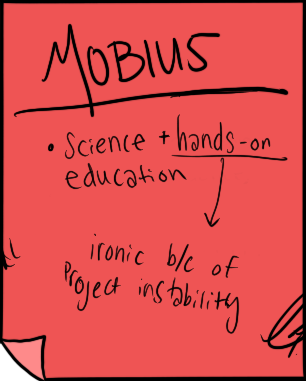 MOBIUS
• Science + hands-on
education
ironic b/c of
Project instability